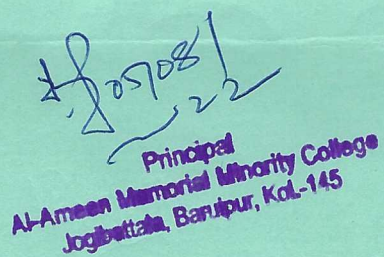 05/08/
22
Principal
Al-Ameen Memorial Minority College
Jogibattala, Baruipur, Kol.-145